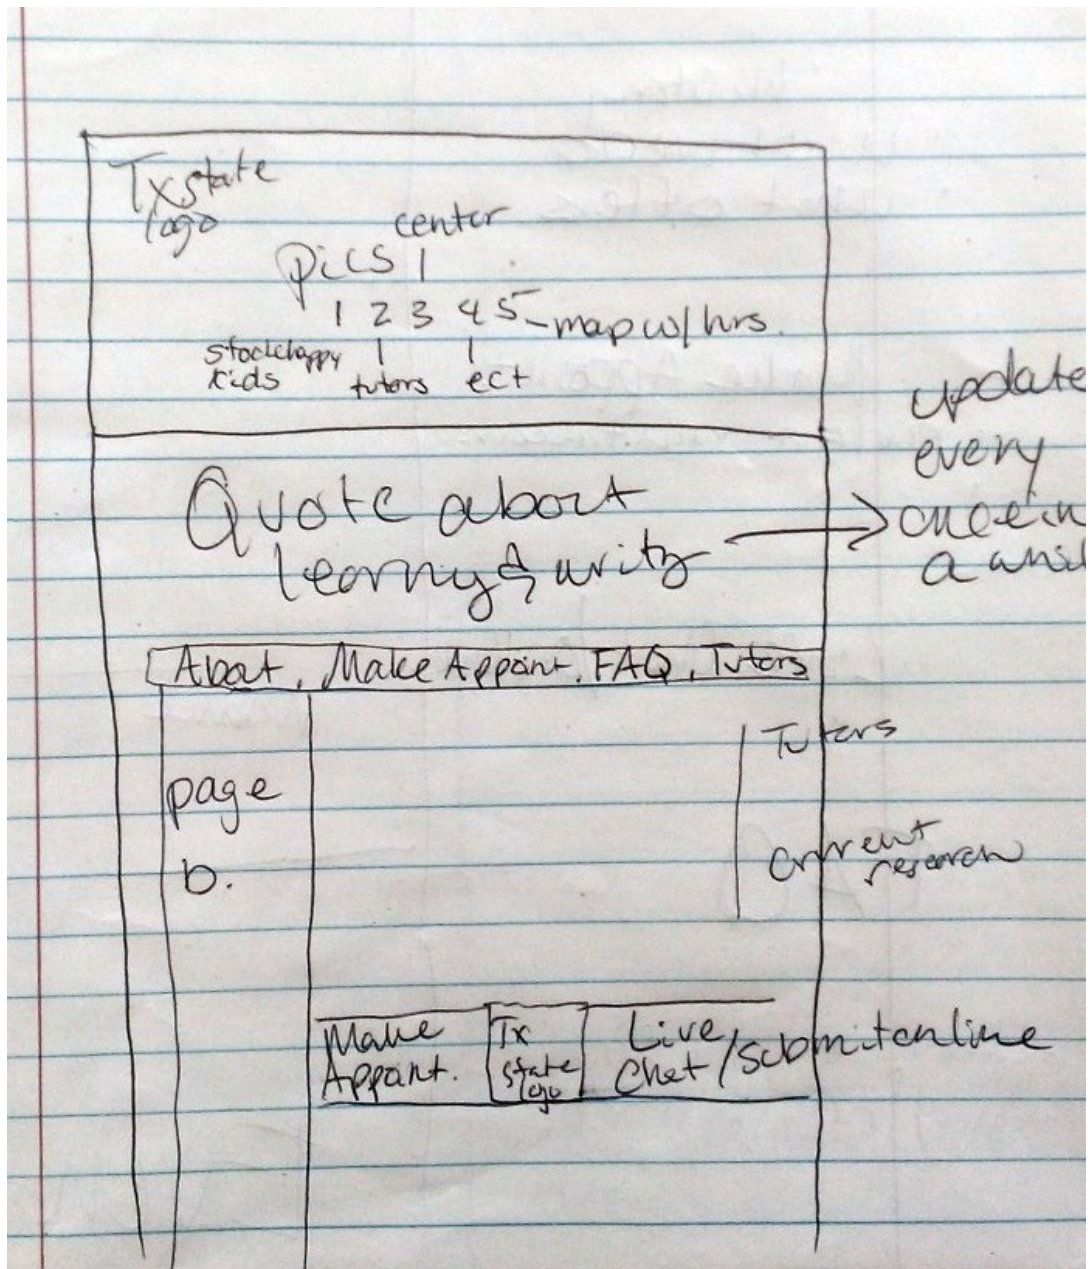 Txstate
logo
center
pics |
1 2 3 4 5 - map w/ hrs.
stock happy
kids
tutors ect
Quote about
learning & writing
update
every
once in
a
About, Make Appoint, FAQ, Tutors
page
b.
Tutors
current
research
Make
Appoint.
Tx
state
logo
Live
Chat / submit online